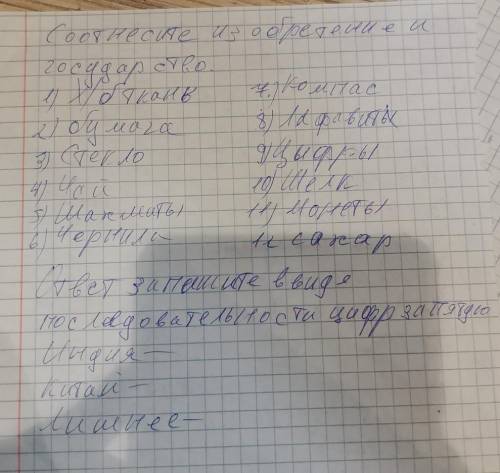 Соотнесите изобретение и
государство.
1) Х/б ткань
2) Бумага
3) Стекло
4) Чай
5) Шахматы
6) Чернила
7.) Компас
8) Алфавиты
9) Цифры
10) Шёлк
11) Монеты
12 сахар
Ответ запишите в виде
последовательности цифр запятую
Индия —
Китай —
Лишнее —